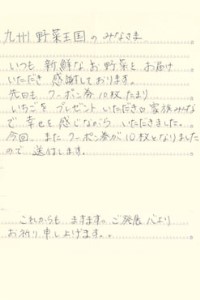 九州 野菜王国のみなさま
いつも 新鮮なお野菜を お届け
いただき 感謝しております。
先日も クーポン券 10枚 たまり
いちごを プレゼント いただき 家族みな
で 幸せを感じながら いただきました。
今回、また クーポン券が 10枚となりました
ので 送付します。
これからも ますますの ご発展 心より
お祈り 申し上げます。